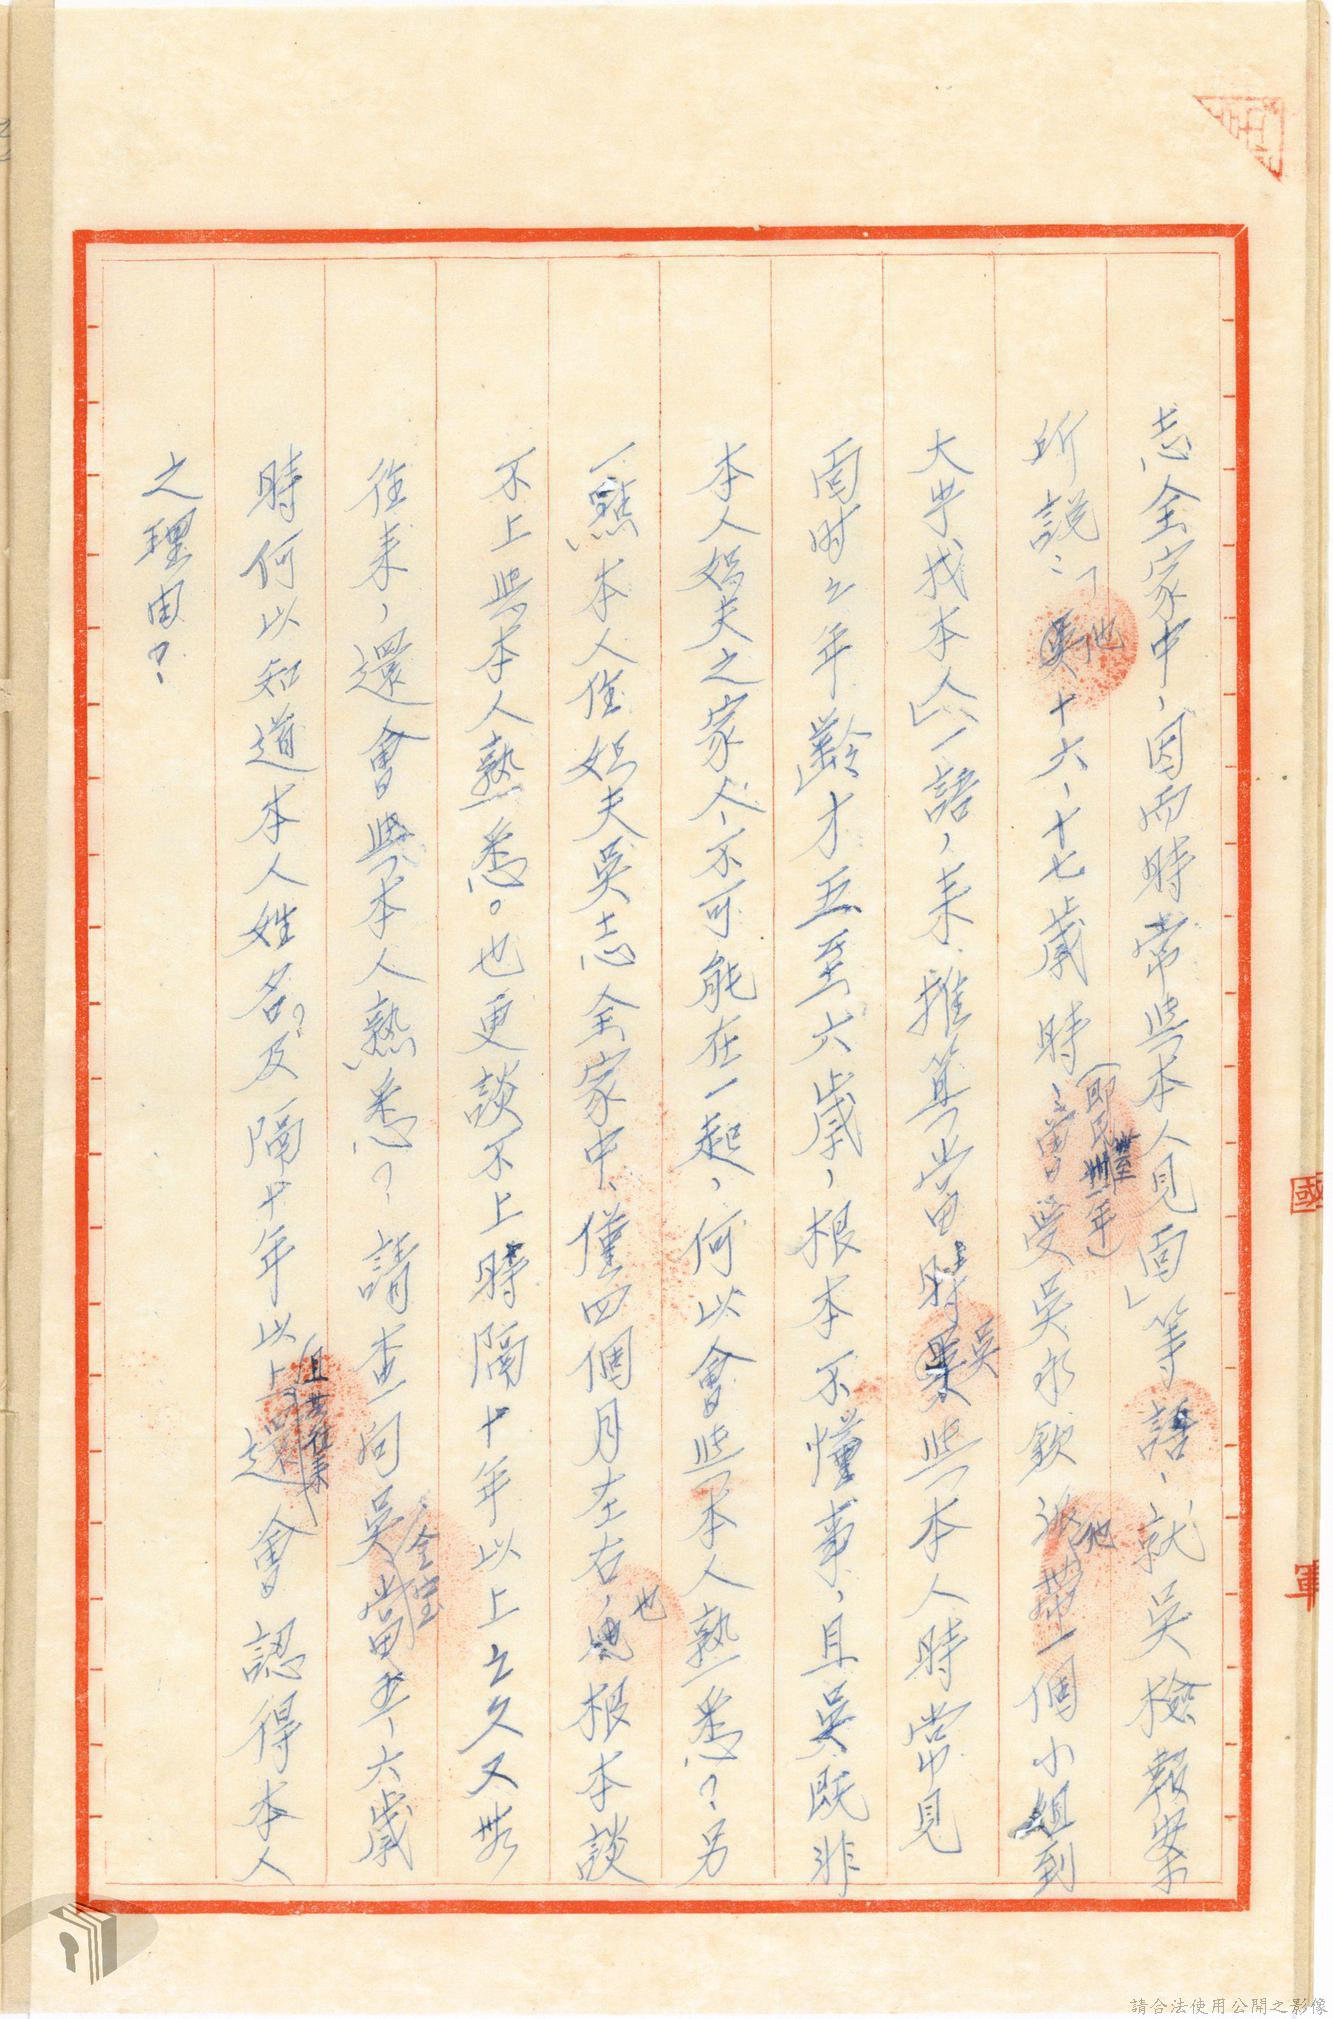 志全家中，因而時常與本人見面」等語，就吳檢報案
所說：「他十六、十七歲時（即民卅至卅一年）曾受吳永欽派他帶一個小組到
大陸找本人」一語，來推算當時吳與本人時常見
面時之年齡才五至六歲，根本不懂事，且吳既非
本人姐夫之家人，不可能在一起，何以會與本人熟悉？另
一點本人住姐夫吳志全家中，僅四個月左右，也根本談
不上與本人熟悉。也更談不上時隔十年以上之久又無
往來，還會與本人熟悉？請查一向吳金宝當年五、六歲
時何以知道本人姓名？及隔十年以上且無往來，還會認得本人
之理由？
國
軍
請合法使用公開之影像